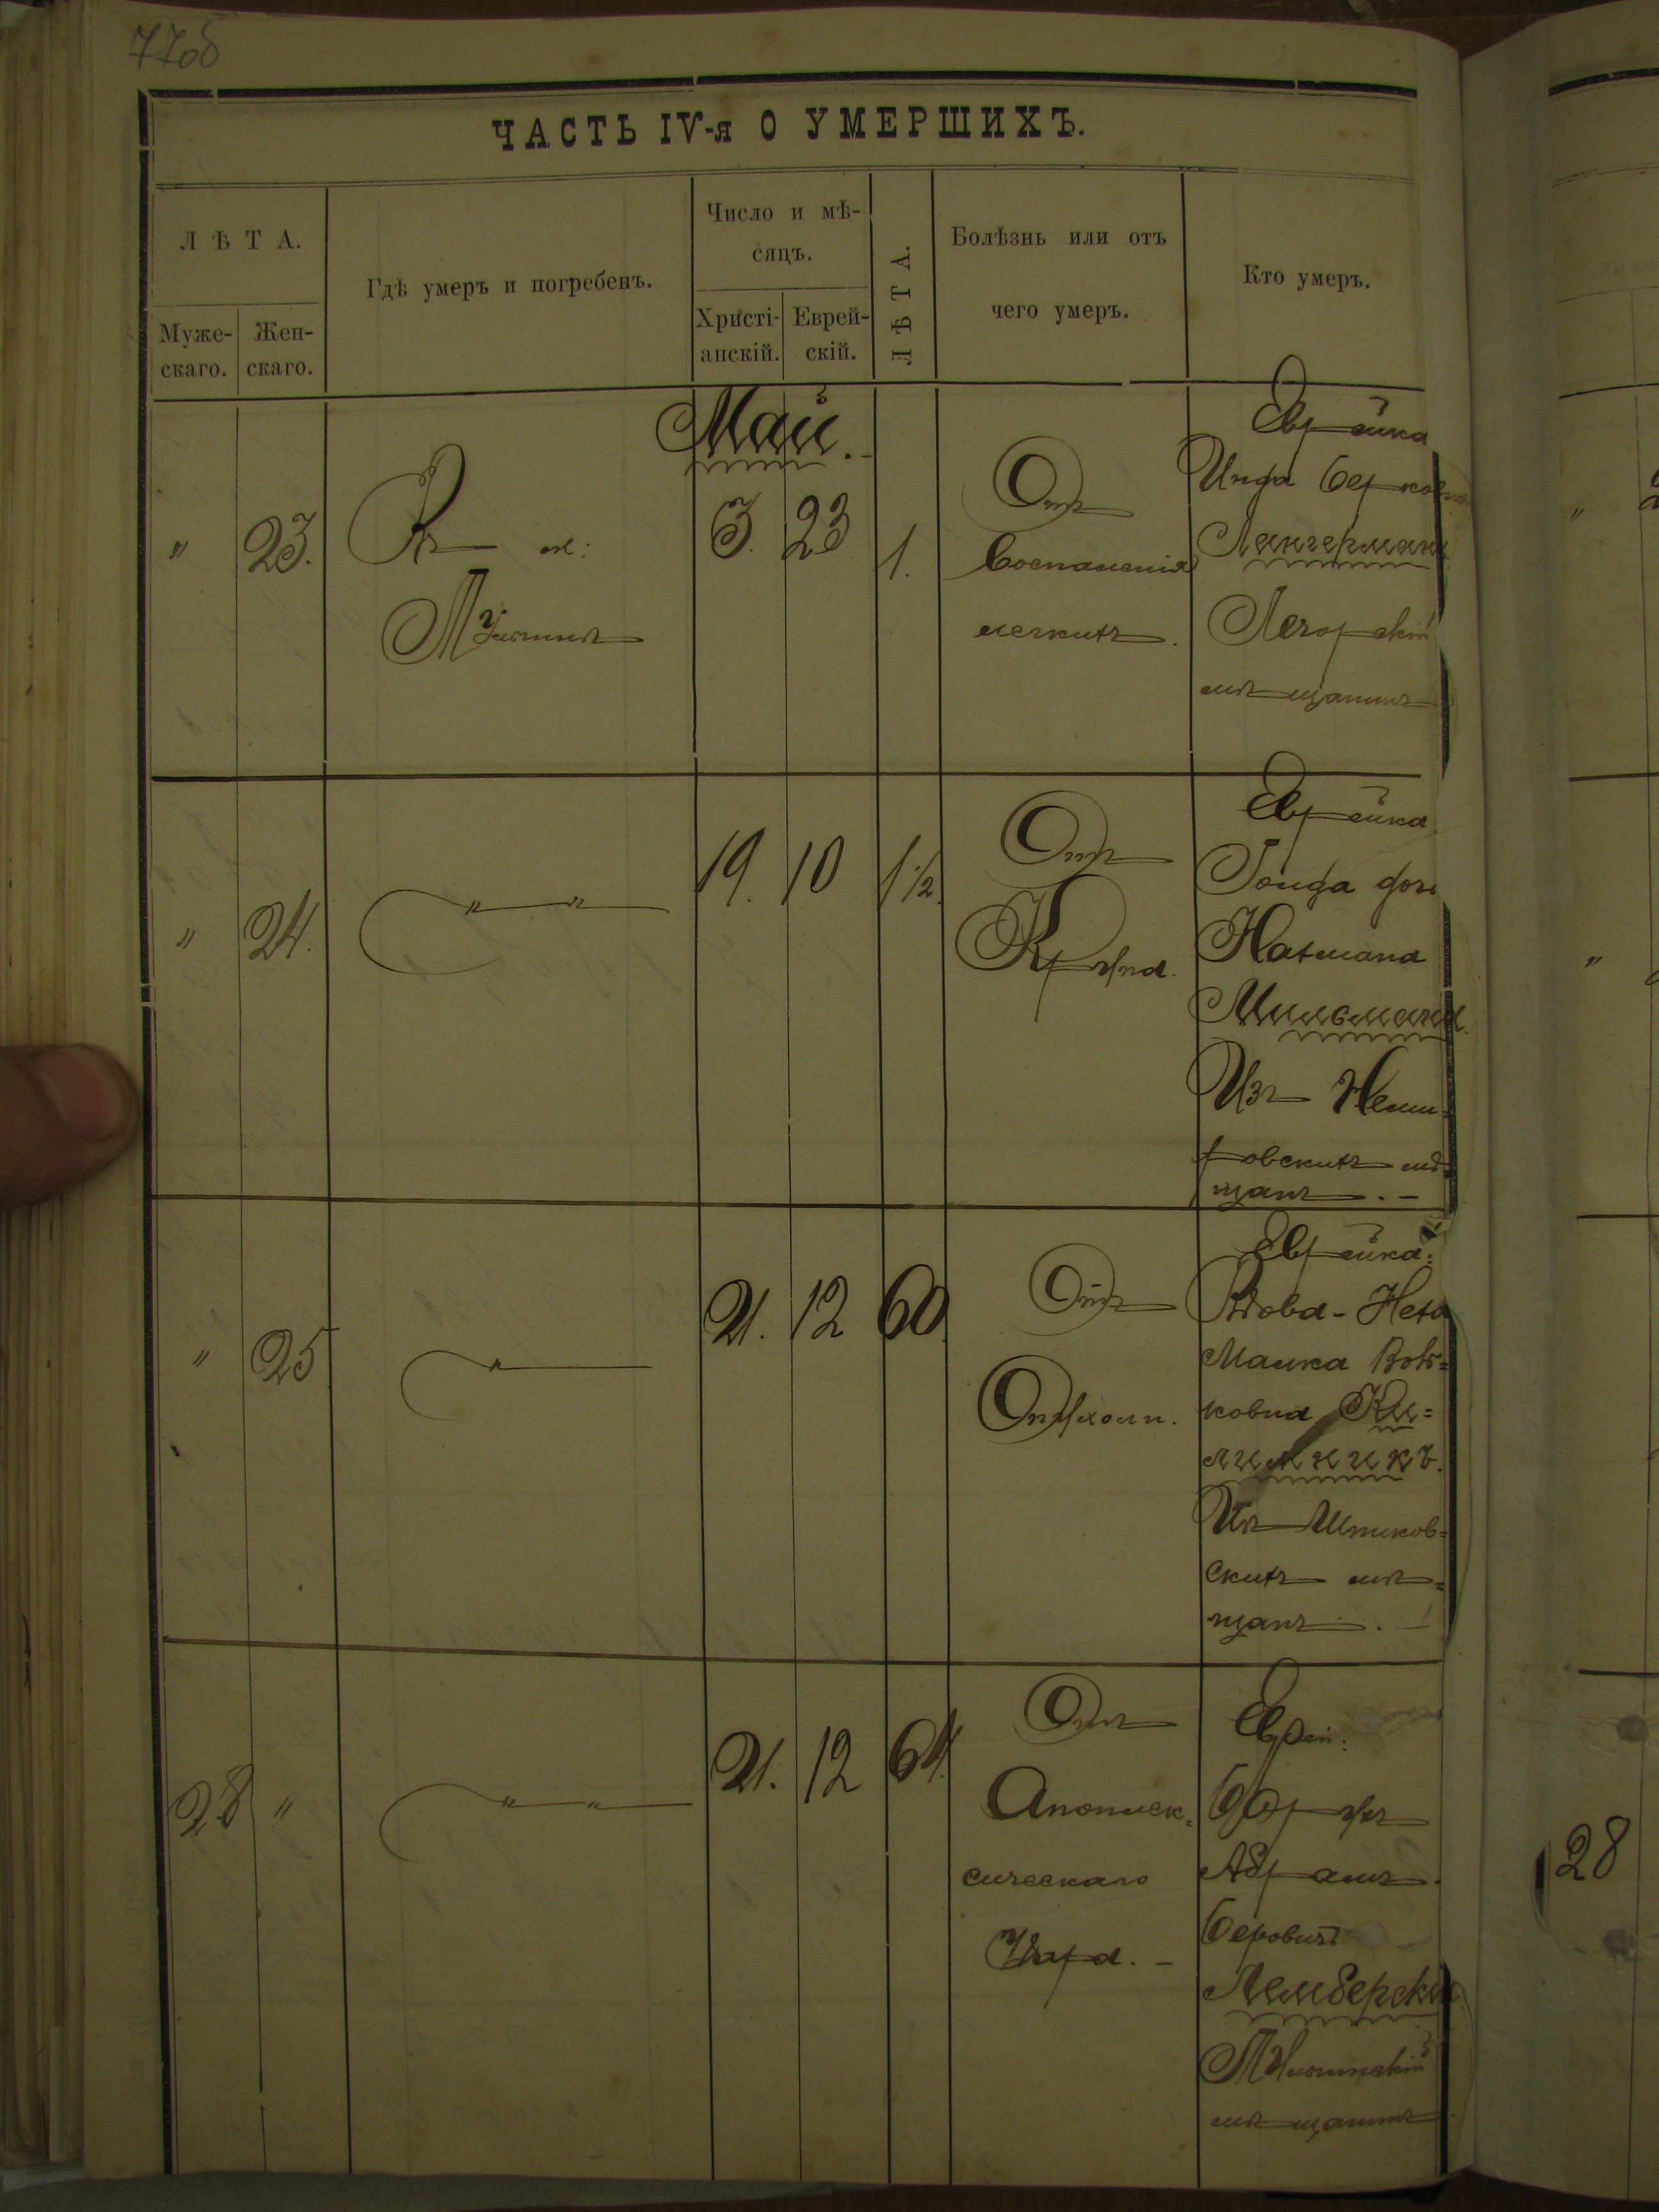 77об
ЧАСТЬ IV-я О УМЕРШИХЪ.
ЛѢТА.
Муже-
скаго.
Жен-
скаго.
Гдѣ умеръ и погребенъ.
Число и мѣ-
сяцъ.
Христі-
анскій.
Еврей-
скій.
ЛѢТА.
Болѣзнь или отъ
чего умеръ.
Кто умеръ.
Май.
„ 23.
Въ м:
Тульчинѣ
3. 23 1.
Отъ
Воспаленія
легкихъ.
Еврейка
Инда Берковна
Лангерманъ
мѣщанинъ
„ 24.
„ „
19. 10 1½.
Отъ
Крупа.
Еврейка
Гольда дочь
Нахмана
Мильмана.
Изъ Неми-
ровскихъ мѣ-
щанъ. –
„ 25
„
21. 12 60.
Отъ
Опухоли.
Еврейка:
Вдова-Неха
Малка Воль=
ковна Ки=
лимникъ.
Изъ
скихъ мѣ=
щанъ. –
28 „
„ „
21. 12 64.
Отъ
Апоплек=
сическаго
Удара. –
Еврей:
Абрамъ
Беровичъ
Лемберскій
Тульчинскій
мѣщанинъ
„
„
28